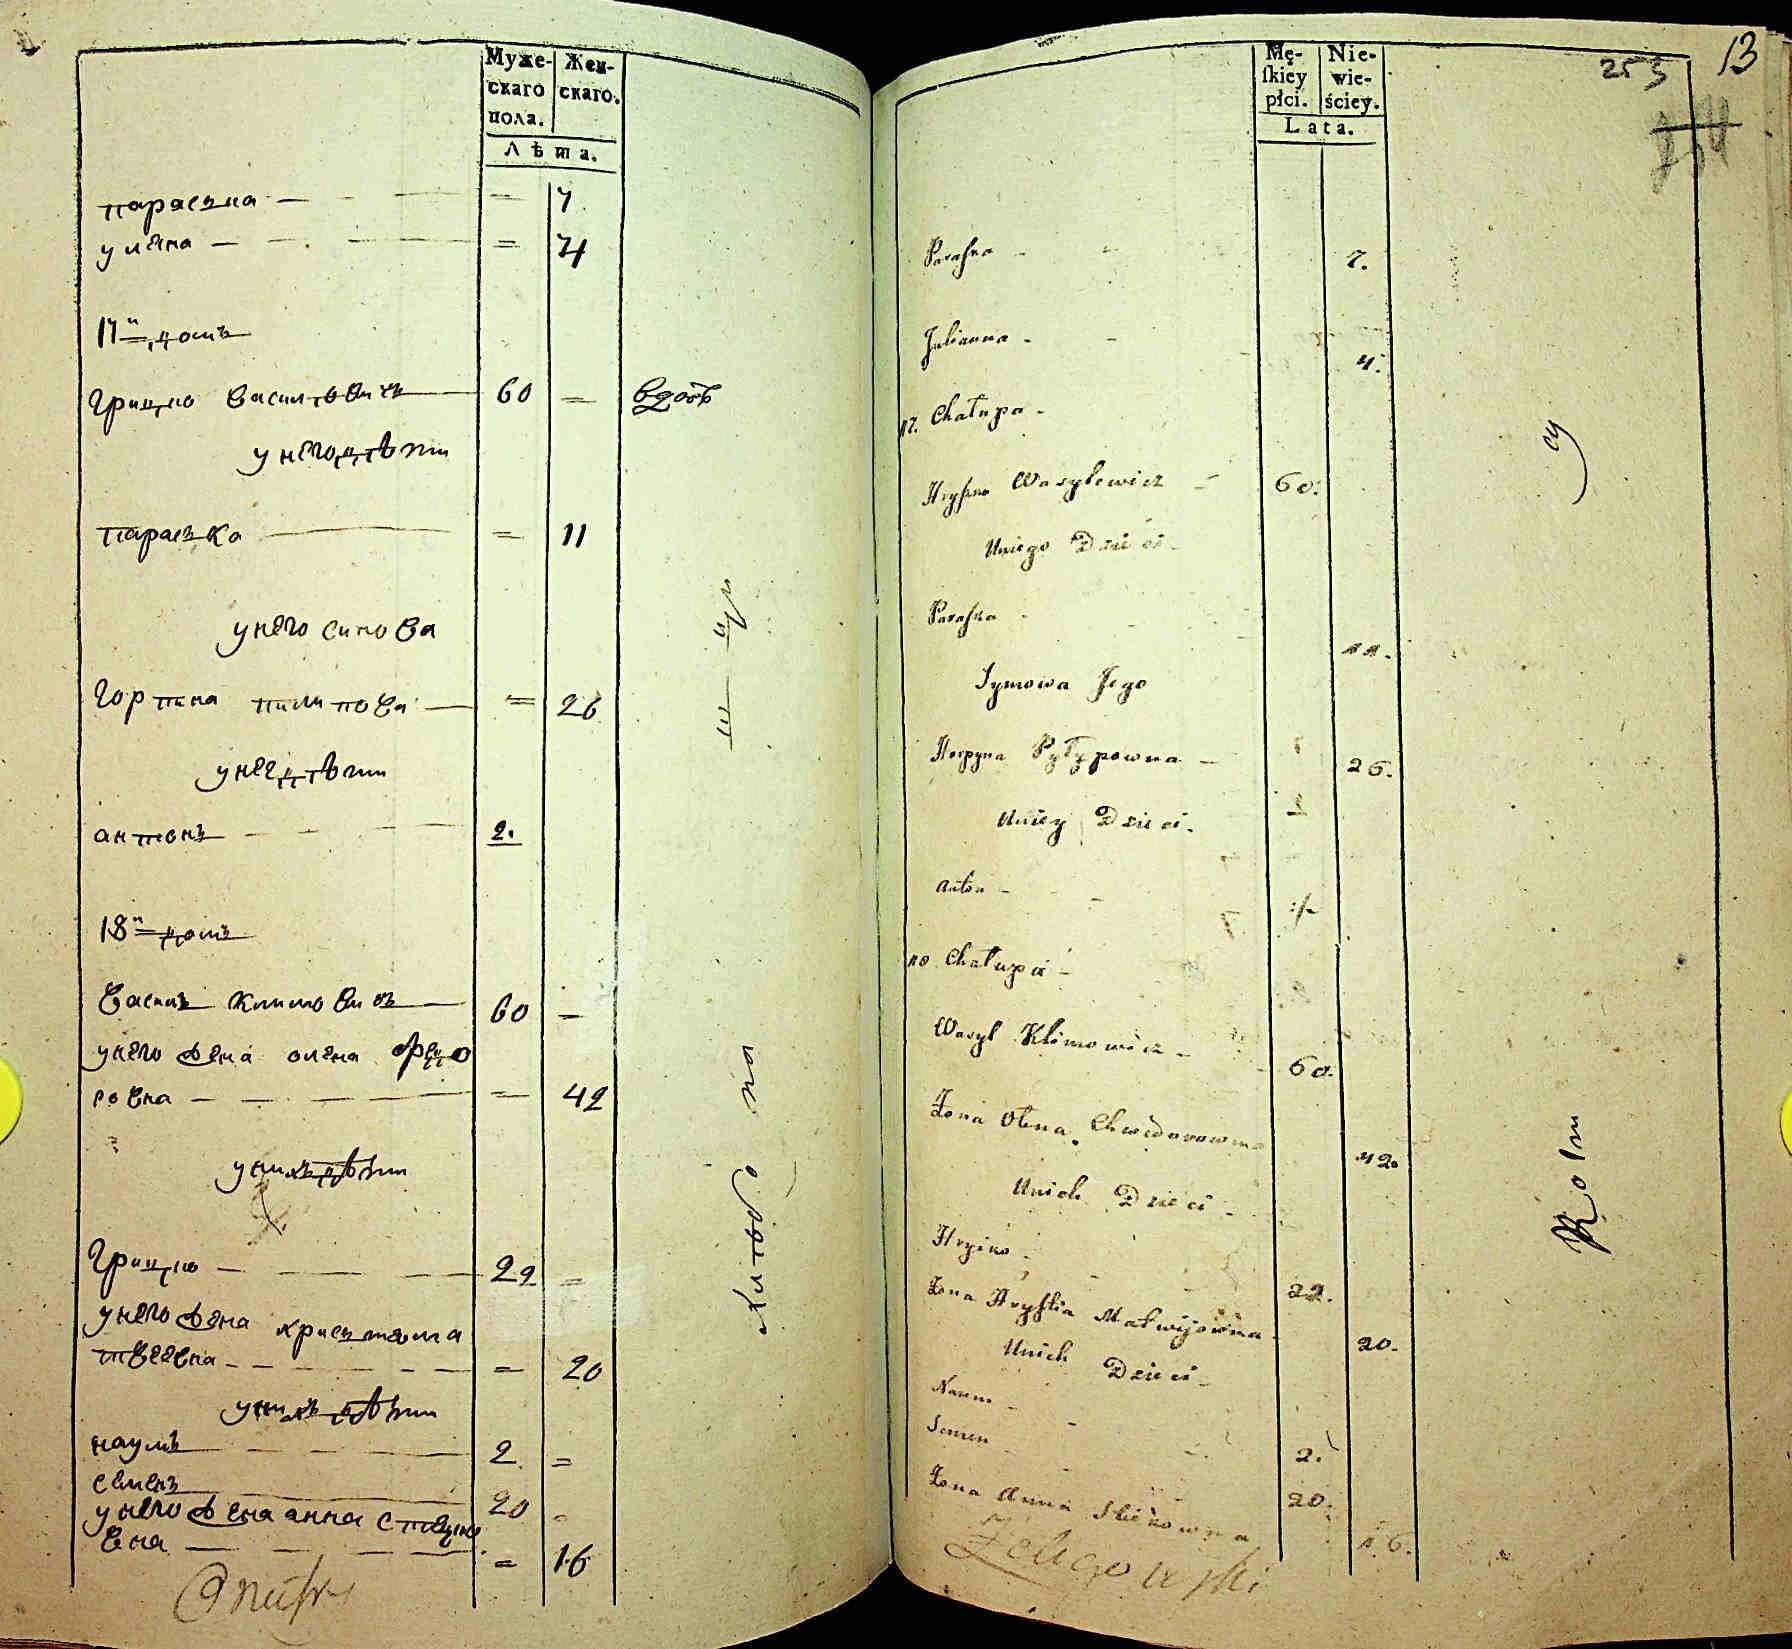 Муже-
скаго
пола.
Жен-
скаго.
Лѣта.
параска — 7
уляна — 4
17й домъ
грицко василювичъ 60 — вдовъ
унего дѣти
параска = 11
унего синова
горпина пилипова = 26
унее дѣти
антонъ 2.
18й домъ
василь климовичъ 60 —
унего жена олена федо
ровна = 42
унихъ дѣти
грицко 22 =
унего жена христя ма
твеевна = 20
унихъ дѣти
наумъ 2 =
семенъ 20
унего жена анна стецко
вна = 16
13
255
Mę-
skiey
płci.
Nie-
wie-
ściey.
Lata.
Paraska 7.
Julianna 4.
17. Chałupa
Hrysko Wasylewicz 60.
Uniego Dzieci
Paraska 11.
Synowa Jego
Horpyna Pyłypowna 26.
Uniey Dzieci.
Anton
18 Chałupa
Wasyl Klimowicz 60.
Żona Olena Chwedorowna 42
Unich Dzieci
Hryćko 22.
Żona Hrystia Matwijowna 20.
Unich Dzieci
Naum 2.
Semen 20.
Żona Anna Stećkowna 16.